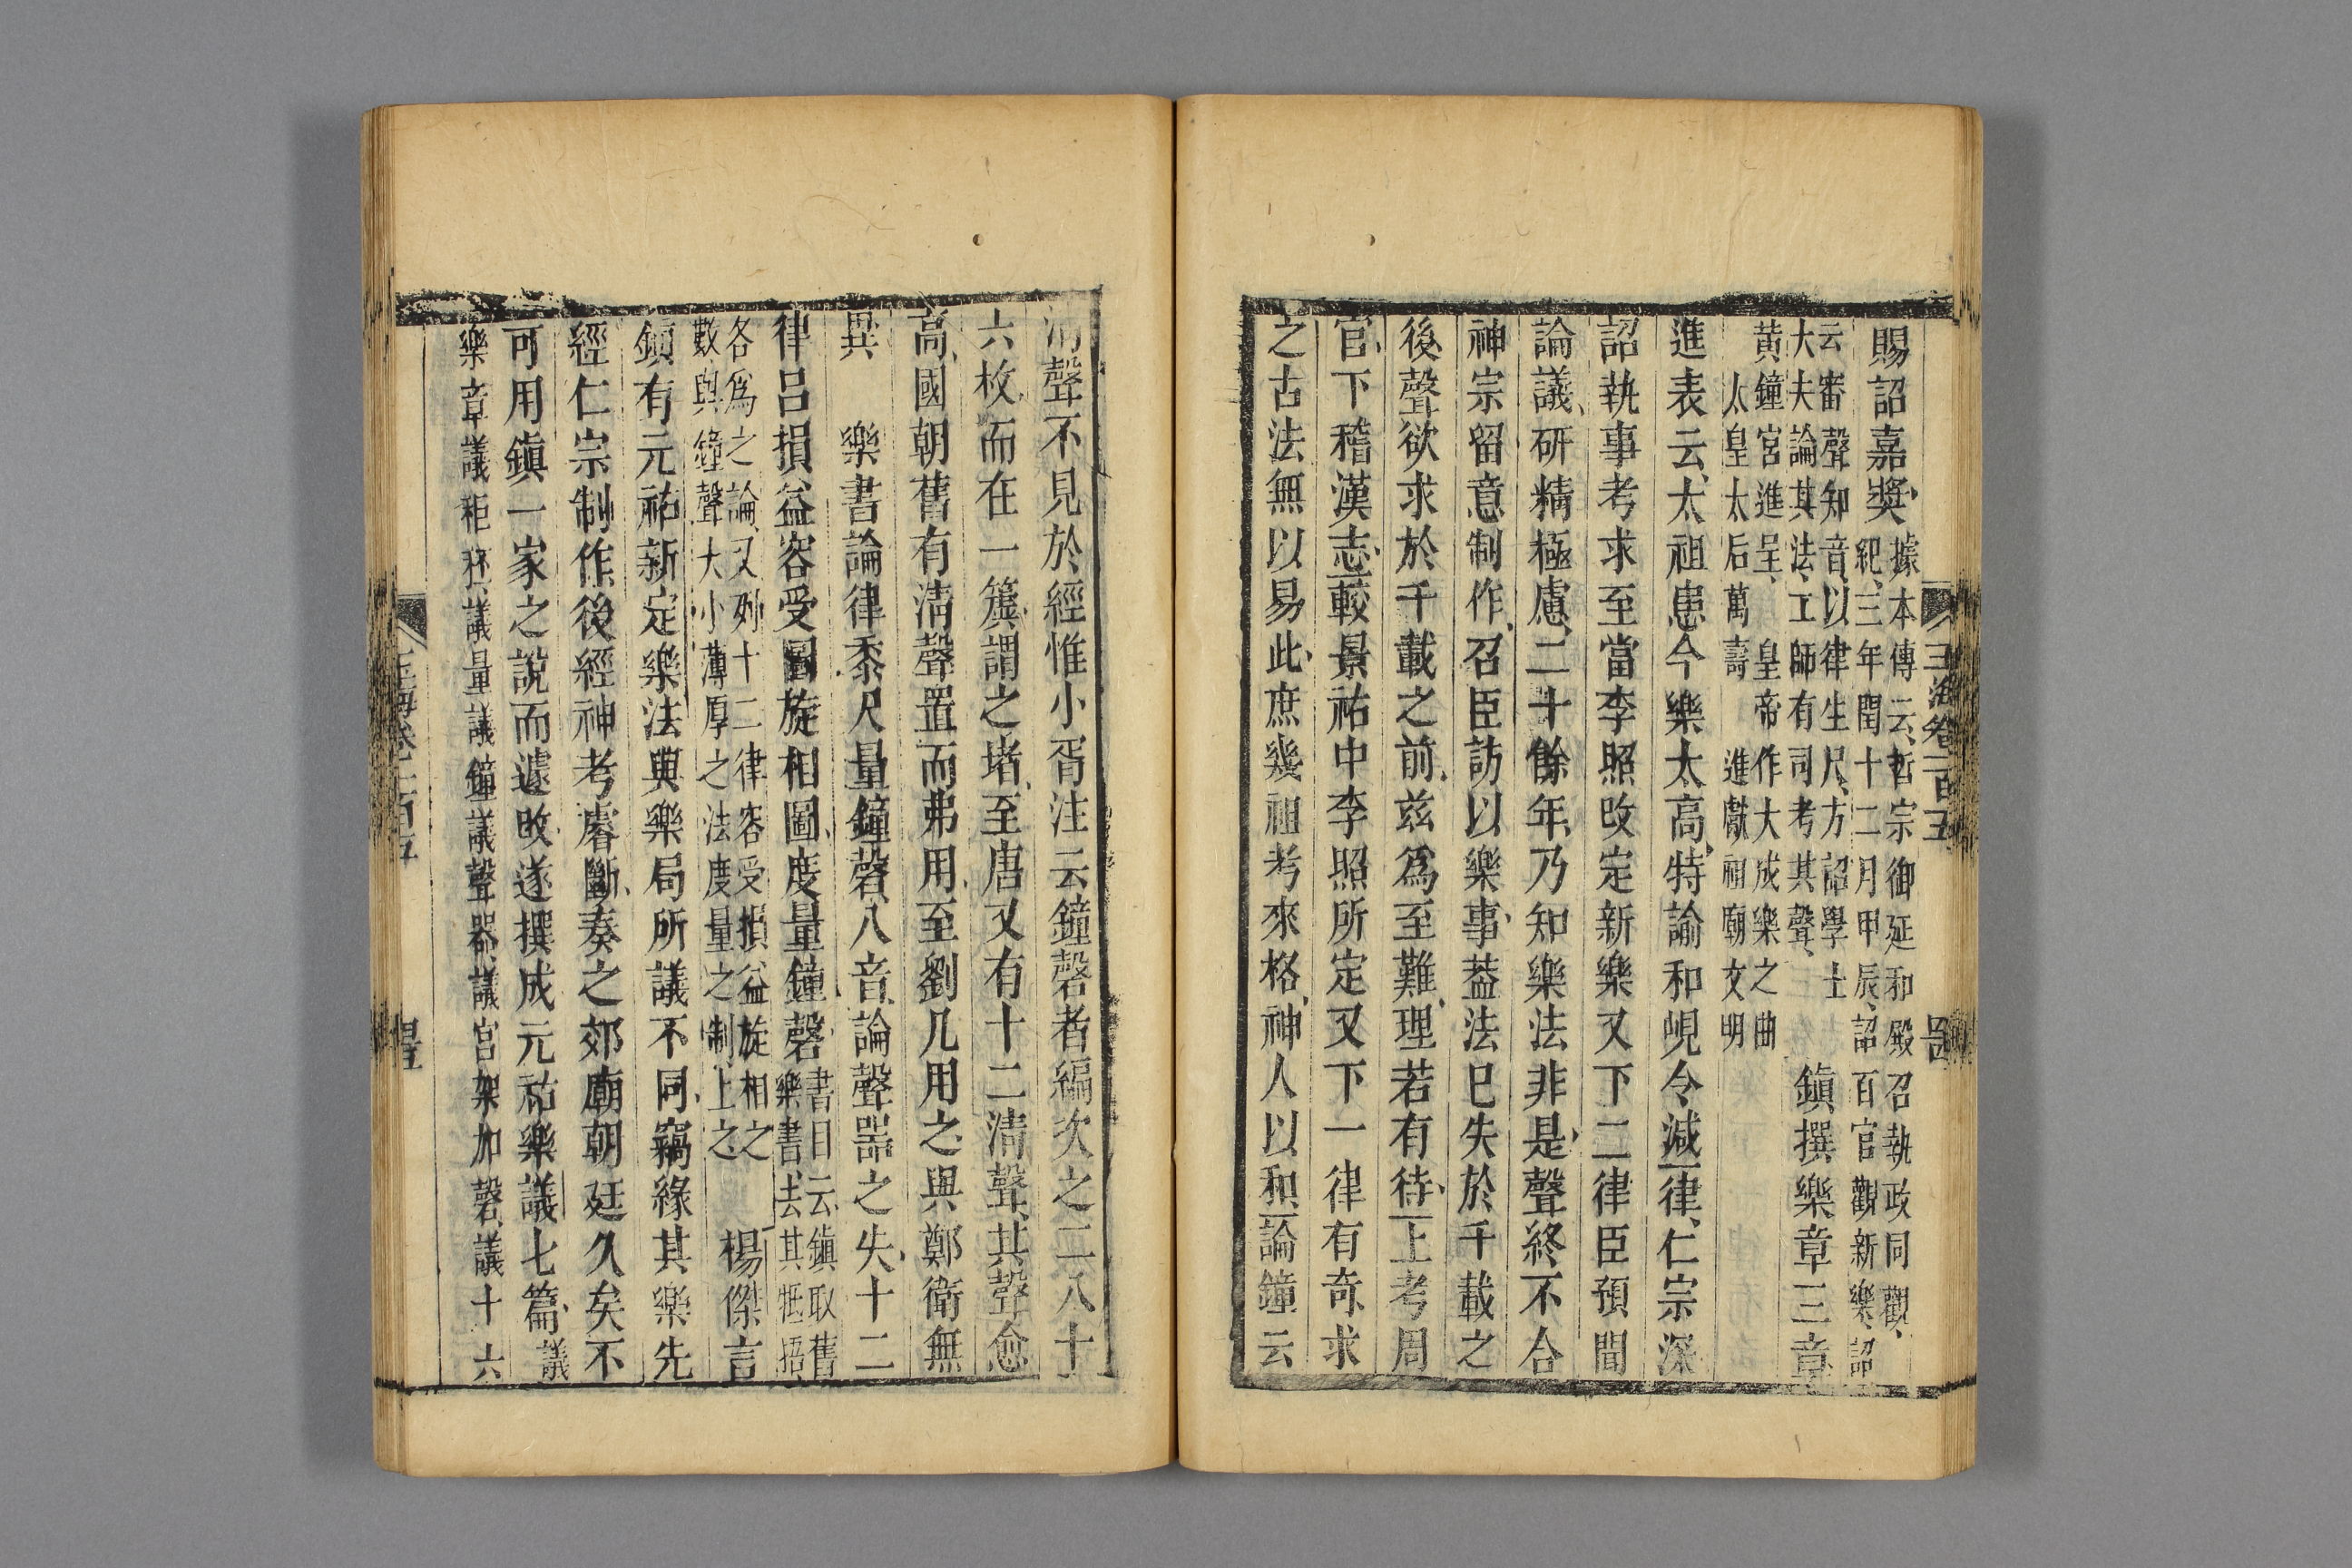 賜詔嘉獎據本傳云哲宗御延和殿召執政同觀
紀三年閏十二月甲辰詔百官觀新樂詔
云審聲知音以律生尺方詔學士
大夫論其法工師有司考其聲鎮撰樂章三章
黃鐘宮進呈皇帝作大成樂之曲
太皇太后萬壽進獻祖廟文明
進表云太祖患今樂太高特諭和峴令減一律仁宗深
詔執事考求至當李照改定新樂又下二律臣預聞
論議研精極慮二十餘年乃知樂法非是聲終不合
神宗留意制作召臣訪以樂事葢法已失於千載之
後聲欲求於千載之前茲爲至難理若有待上考周
官下稽漢志較景祐中李照所定又下一律有奇求
之古法無以易此庶幾祖考來格神人以和論鐘云
玉海卷一百五
清聲不見於經惟小胥注云鐘磬者編次之二八十
六枚而在一簴謂之堵至唐又有十二清聲其聲愈
高國朝舊有清聲置而弗用至劉几用之與鄭衛無
異　樂書論律黍尺量鐘磬八音論聲器之失十二
律呂損益容受圖旋相圖度量鐘磬書目云鎮取舊
樂書去其牴牾
各爲之論又列十二律容受損益旋相之
數與鐘聲大小薄厚之法度量之制上之楊傑言
鎮有元祐新定樂法與樂局所議不同竊緣其樂先
經仁宗制作後經神考睿斷奏之郊廟朝廷久矣不
可用鎮一家之說而遽改遂撰成元祐樂議七篇議
樂章議秬秠議量議鐘議聲器議宮架加磬議十六
玉海卷一百五